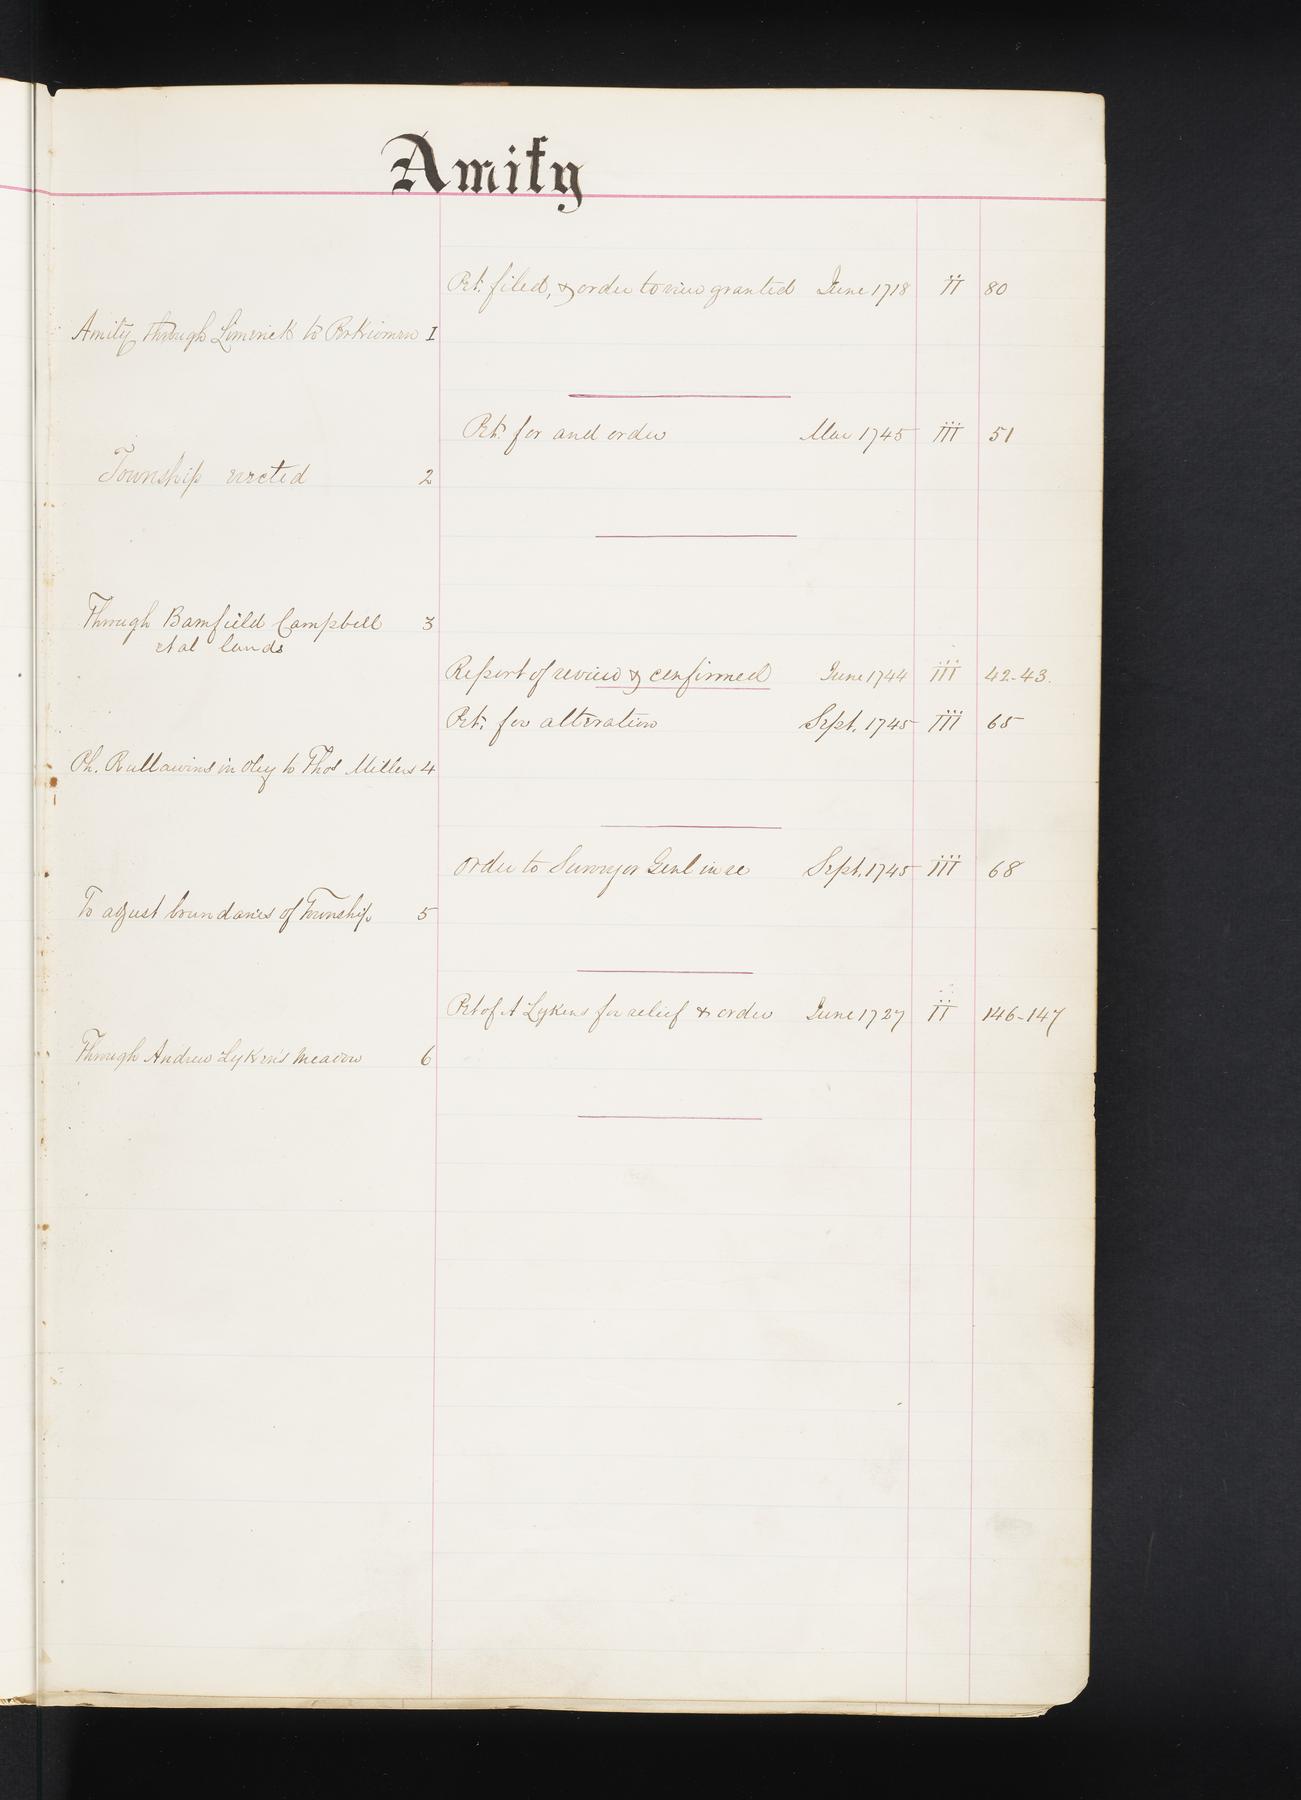 Amity
Pet. filed, & order to view granted June 1718 II 80
Amity through Limerick to Perkiomen 1
Pet. for and order Mar 1745 III 51
Township erected 2
Through Bamfield Campbell 3
et al lands
Report of review & confirmed June 1744 III 42-43.
Pet. for alteration Sept. 1745 III 65
Ph. in Oley to Thos Millers 4
Order to Surveyor Genl in re Sept. 1745 III 68
To adjust boundaries of Township 5
Pet of A Lykens for relief & order June 1727 II 146-147
Through Andrew Lyken's Meadow 6